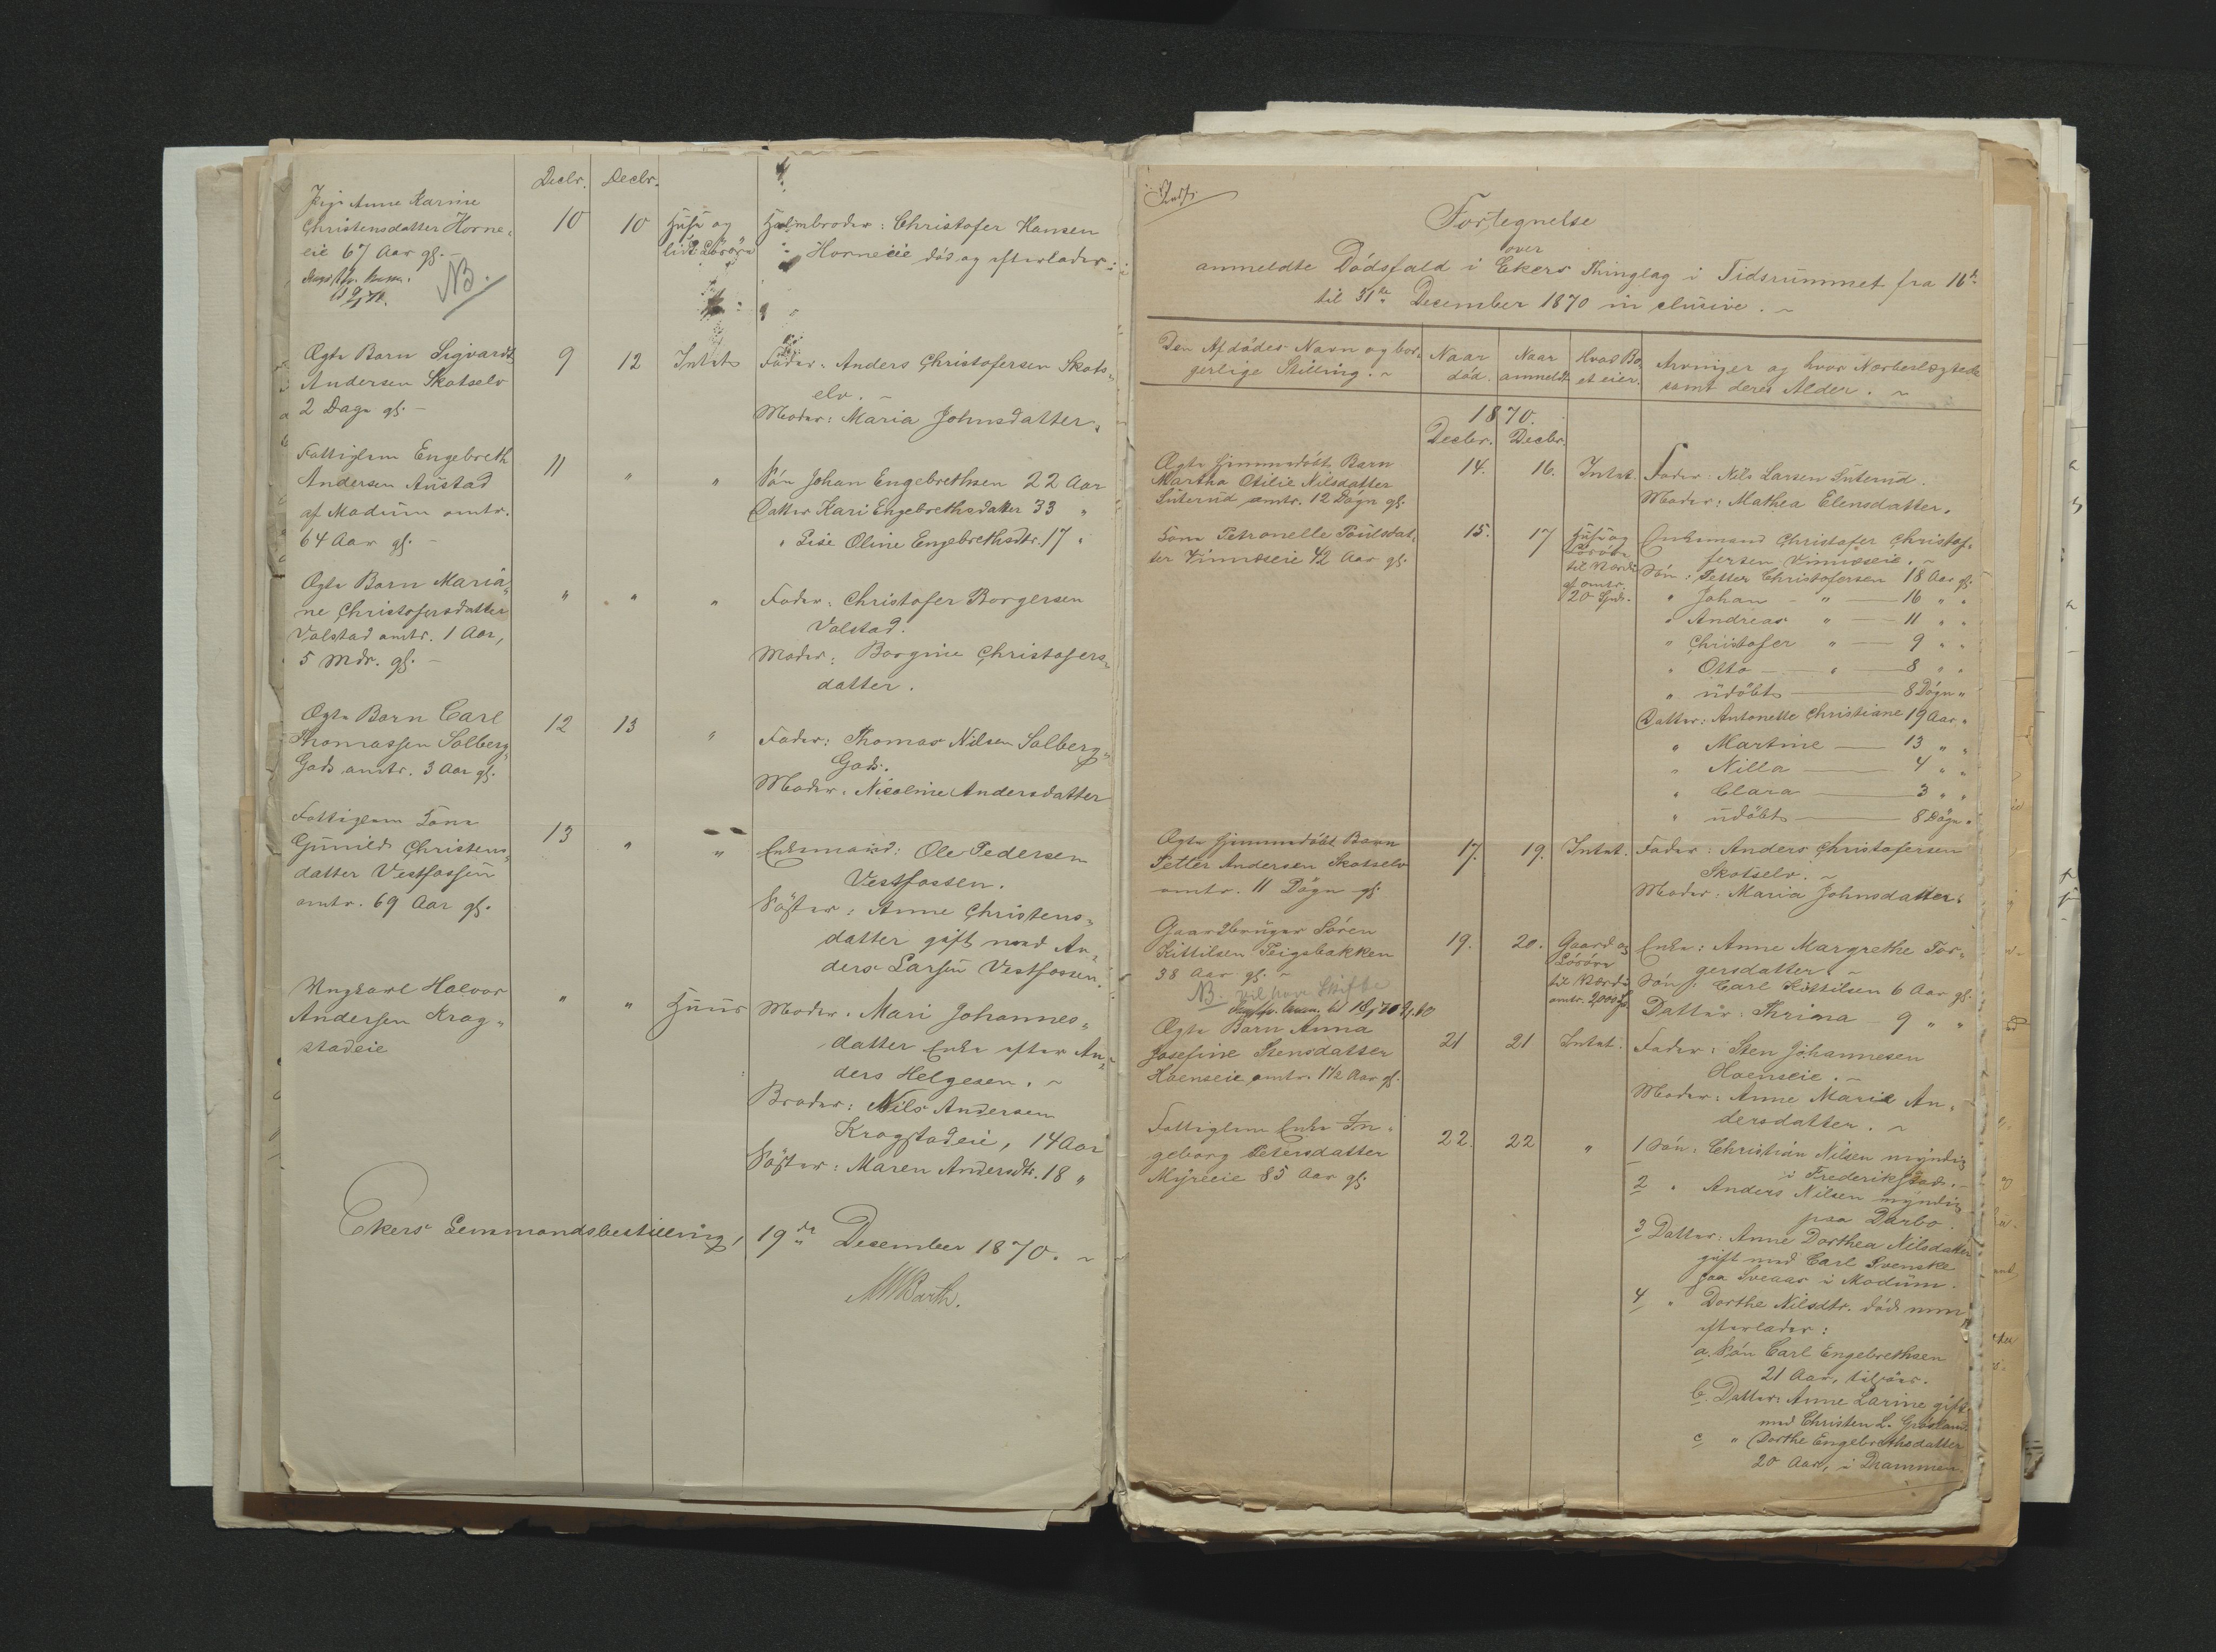 Decbr. Decbr.
Pige Anne Karine
Christensdatter Horne„
eie 67 Aar gl. –
10 10 Huse og
lidt Lösöre
Halvbroder: Christofer Hansen
Horneeie död og efterlader:
NB.
Ægte Barn Sigvardt
Andersen Skotselv
2 Dage gl. –
9 12 Intet
Fader: Anders Christofersen Skots„
elv. –
Moder: Maria Johnsdatter.
Fattiglem Engebreth
Andersen Austad
af Modum omtr.
64 Aar gl. –
11 " "
Sön Johan Engebrethsen 22 Aar
Datter Kari Engebrethsdatter 33 "
" Lise Oline Engebrethsdtr. 17 "
Ægte Barn Maria„
ne Christofersdatter
Valstad omtr. 1 Aar,
5 Mdr. gl. –
" " "
Fader: Christofer Borgersen
Valstad.
Moder: Borgine Christofers„
datter.
Ægte Barn Carl
Thomassen Solberg„
Gods omtr. 3 Aar gl.
12 13 "
Fader: Thomas Nilsen Solberg„
Gods.
Moder: Nicoline Andersdatter
Fattiglem Kone
Gunild Christens„
datter Vestfossen
omtr. 69 Aar gl.
13 " "
Enkemand: Ole Pedersen
Vestfossen.
Söster: Anne Christens„
datter gift med An„
ders Larsen Vestfossen.
Ungkarl Halvor
Andersen Krog„
stadeie
" " Huus
Moder: Mari Johannes„
datter Enke efter An„
ders Helgesen. –
Broder: Nils Andersen
Krogstadeie, 14 Aar
Söster: Maren Andersdtr. 18 "
Ekers Lensmandsbestilling, 19de December 1870. –
MWBarth.
Fortegnelse
over
anmeldte Dödsfald i Ekers Thinglag i Tidsrummet fra 16de
til 31te December 1870 inclusive. –
Den Afdödes Navn og bor„
gerlige Stilling. –
Naar
död.
Naar
anmeldt
Hvad Bo„
et eier.
Arvinger og hvor Nærbeslægtede
samt deres Alder. –
1870.
Decbr. Decbr.
Ægte hjemmedöbt Barn
Martha Otilie Nilsdatter
Suterud omtr. 12 Dögn gl.
14. 16. Intet.
Fader: Nils Larsen Suterud.
Moder: Mathea Elensdatter.
Kone Petronelle Poulsdat„
ter Vinnæseie 42 Aar gl.
15. 17
Huse og
Lösöre
til Værdi
af omtr.
20 Spd.
Enkemand Christofer Christof„
fersen Vinnæseie. –
Sön: Petter Christofersen 18 Aar gl.
" Johan " 16 " "
" Andreas " 11 " "
" Christofer " 9 " "
" Otto " 8 " "
" udöbt 8 Dögn "
Datter: Antonette Christiane 19 Aar "
" Martine 13 " "
" Nilla 4 " "
" Clara 3 " "
" udöbt 8 Dögn "
Ægte hjemmedöbt Barn
Petter Andersen Skotselv
omtr. 11 Dögn gl.
17. 19. Intet.
Fader: Anders Christofersen
Skotselv. –
Moder: Maria Johnsdatter.
Gaardbruger Sören
Kittilsen Teigsbakken
38 Aar gl. –
NB. vil have Skifte
19. 20.
Gaard og
Lösöre
til Værdi
omtr. 2,000 Spd.
Enke: Anne Margrethe Tor„
gersdatter. –
Sön: Carl Kittilsen 6 Aar gl.
Datter: Thrina 9 " "
Ægte Barn Anna
Josefine Stensdatter
Hoenseie omtr. 1 1/2 Aar gl.
21 21 Intet.
Fader: Sten Johannesen
Hoenseie. –
Moder: Anne Marie An„
dersdatter. –
Fattiglem Enke In„
geborg Petersdatter
Myreeie 85 Aar gl.
22. 22 "
1 Sön: Christian Nilsen myndig
i Frederikstad. –
2 " Anders Nilsen myndig
paa Darbo.
3 Datter: Anne Dorthea Nilsdatter
gift med Carl Svenske
paa Sveaas i Modum.
4 " Dorthe Nilsdtr. död men
efterlader:
a. Sön Carl Engebrethsen
21 Aar, tilsöes.
b. Datter: Anne Larine gift
med Christen L.
c " Dorthe Engebrethsdatter
20 Aar, i Drammen.